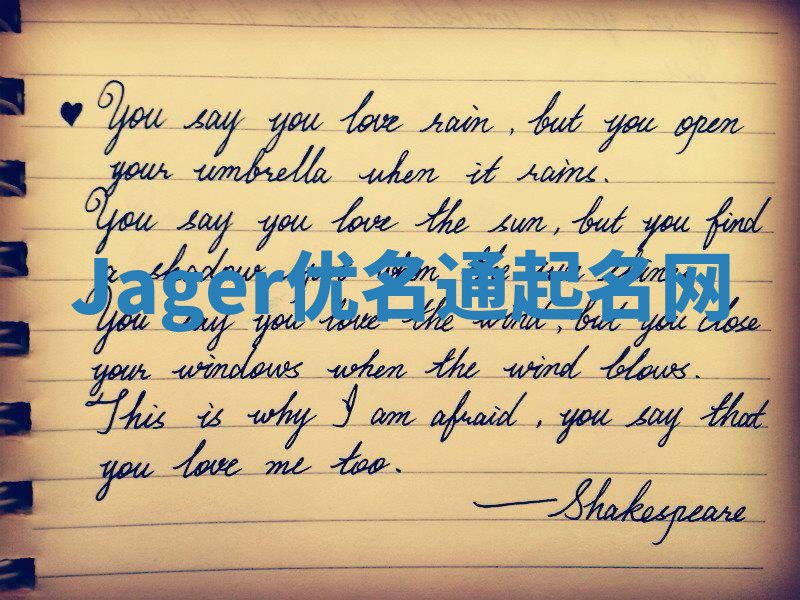 You say you love rain, but you open
your umbrella when it rains.
You say you love the sun, but you find
a shadow when the sun shines.
Jager优名通起名网
You say you love the wind, but you close
your windows when the wind blows.
This is why I am afraid, you say that
you love me too.
—Shakespeare